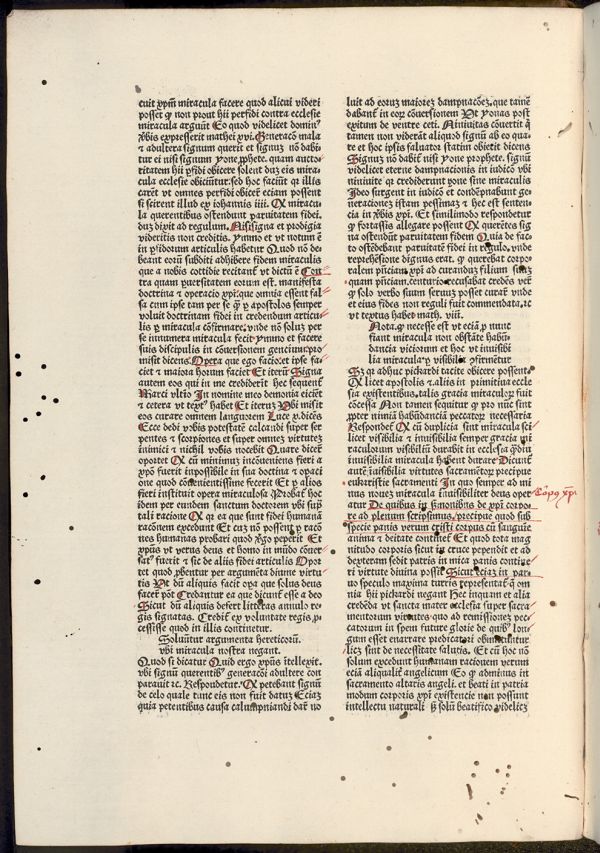 cuit xp̄m miracula facere quod alicui videri
posset qͥ non prout hii perfidi contra ecclesie
miracula arguūt Eo quod videlicet domin⁹
v̄bis expresserit mathei xvi. Generacō mala
⁊ adultera signum querit et signuȝ nō dabi
tur ei nisi signum yone ꝓphete. quam aucto
ritatem hii ꝑfidi obicere solent
cula ecclesie obiciūtur. sed hoc faciūt qꝛ illis
caret vt omnes perfidi obicere eciam possent
si scirent illud ex iohannis iiii. Oꝝ miracu
la querentibus ostendunt paruitatem fidei.
duȝ dixit ad regulum. Nisi signa et prodigia
videritis non creditis. ymmo et vt notum ē
in ꝑfidorum articulis habetur Quod nō de
beant eorū subditi adhibere fidem miraculis
que a nobis cottidie recitant̄ vt dictū ē Con
tra quam ꝑuersitatem eorum est. manifesta
doctrina ⁊ operacio xp̄i que omnia essent fal
sa cum ipse tam per se qͣꝫ ꝑ apostolos semper
voluit doctrinam fidei in credendum articu
lis ꝑ miracula cōfirmare. vnde nō soluȝ per
se innumera miracula fecit ymmo et facere
suis discipulis in cōuersionem gencium pro
misit dicens. Opera que ego facio et ipse fa
ciet ⁊ maiora horum faciet Et iterū Signa
autem eos qui in me crediderīt hec sequent̄
Marci vltio In nomine meo demonia eiciēt
⁊ cetera vt text⁹ habet Et iteruȝ Vbi misit
eos curare omnem languorem Luce x. dicēs
Ecce dedi vobis potestatē calcandi super ser
pentes ⁊ scorpiones et super omneȝ virtuteȝ
inimici ⁊ nichil vobis nocebit Quare dicere
oportet Oꝝ cū minimuȝ incōueniens fieri a
xp̄o fuerit inpossibile in sua doctina ⁊ opaci
one quod conuenientissime fecerit Et ꝑ alios
fieri instituit opera miraculosa Probat̄ hoc
idem per eundem sanctum doctorem vbi sup̄
tali racione Oꝝ ea que sunt fidei humana
racōnem excedunt Et eaꝫ nō possent ꝑ racō
nes humanas probari quod xp̄o peperit Et
xp̄us vt verus deus et homo in mūdo cōuer
sat⁹ fuerit ⁊ sic de aliis fidei articulis Opor
tet quod ꝓbentur per argumēta diuine virtu
tis Vt dū aliquis facit opa que solus deus
facer̄ pōt Credantur ea que dicunt̄ esse a deo
Sicut dū aliquis defert litteras annulo re
gis signatas. Credit̄ ex voluntate regis ꝓ
cessisse quod in illis continetur.
Soluūtur argumenta hereticorū.
vbi miracula nostra negant.
Quod si dicatur Quid ergo xp̄us ītellexit.
vbi signū querentib⁹ generacōi adultere con
parauit ⁊c. Respondetur. Oꝝ petebant signū
de celo quale tunc eis non fuit datuȝ Eciaȝ
quia petentibus causa calumpniandi dar̄ nō
luit ad eoruȝ maioreȝ dampnacōeȝ. que tamē
dabant̄ in eoꝝ cōuersionem Vt yonas post
exitum de ventre ceti. Niniuitas cōuertit qͥ
tamen non viderāt aliquod signū ab eo qua
re et hoc ipsis saluatori statim obietit dicens
Signuȝ nō dabit̄ nisi yone prophete. signū
videlicet eterne dampnacionis in iudicō vbi
niniuite qꝛ crediderunt ꝓne sine miraculis
Ideo surgent in iudicō et condēpnabunt ge
neracioneȝ istam pessimaȝ ⁊ hec est senten
cia in v̄bis xp̄i. Et similimodo respondetur
qͥ fortassis allegare possent Oꝝ querētes sig
na ostendūt paruitatem fidem Quia de fac
to ostēdebant paruitatē fidei in regulo. vnde
reprehēsione dignus erat. qͥ querebat corpo
ralem pn̄ciam xp̄i ad curanduȝ filium suuȝ
quam pn̄ciam. centurio recusabat credēs ver̄
qͥ solo verbo suum seruuȝ posset curar̄ vnde
et eius fides non reguli fuit commendata. ⁊c
vt textus habet math. viii.
Nota. qͥ necesse est vt eciā ꝑ nunc
fiant miracula non obstāte habū
dancia victorum et hoc vt inuisibi
lia miracula ꝑ visibilia ꝯfirmētur
Sȝ qꝛ adhuc pickardi tacite obicere possent
Oꝝ licet apostolis ⁊ aliis in primitiua eccle
sia existentibus. talis gracia miraculoꝝ fuit
cōcessa Non tamen sequitur qͥ pro nūc sint
ꝓpter nimiā habūdanciā peccatoꝝ necessaria
Respondet̄ Oꝝ cū duplicia sint miracula sci
licet visibilia ⁊ inuisibilia semper gracia mi
raculorum visibiliū durabit in ecclesia qͥdū
inuisibilia miracula habent durare Dicunt̄
autē īuisibilia virtutes sacramētoꝝ precipue
eukaristie sacramenti In quo semper ad mi
nus noueȝ miracula inuisibiliter deus oper
atur De quibus in ſmonibus de xp̄i corpo
re ad plenum scripsimus. precipue quod sub
specie panis verum cristi corpus cū sanguie
anima ⁊ deitate continet̄ Et quod tota mag
nitudo corporis sicut in cruce pependit et ad
dexteram sedit patris in mica panis contine
ri virtute diuina possit Sicut eciaȝ in par
uo speculo maxima turris representat̄ qͣ om
nia hii pickardi negant Hec inquam et alia
credēda vt sancta mater ecclesia super sacra
mentorum virtutes quo ad remissioneȝ pec
catorum in spem future glorie de quib⁹ lon
gum esset enarrare predicatori obmittuntur
licȝ sint de necessitate salutis. Et cū hoc nō
solum excedunt humanam racionem verum
eciā aliqualit̄ angelicum Eo qͥ adminus in
sacramento altaris angeli. et beati in patria
modum corporis xp̄i existencie non possunt
intellectu naturali ſȝ solū beatifico videlicȝ
Corpꝰ xp̄i